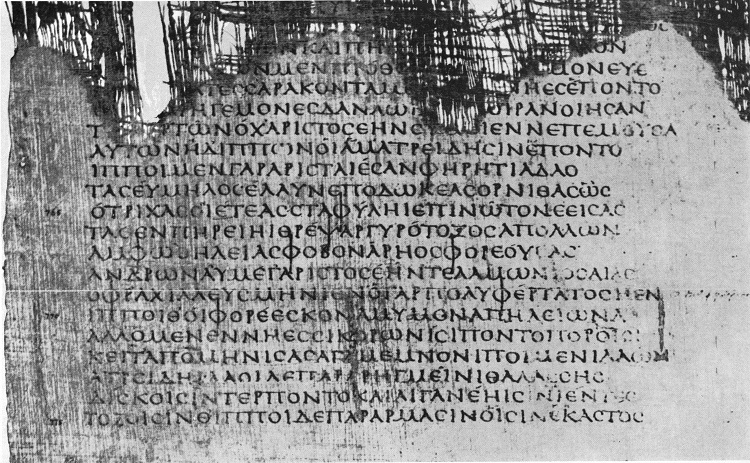 ΚΑΙΠΗ ΟΝ
ΩΝΜΕΝΠΡΟΘ ΜΟΝΕΥΕ
ΤΕCCΑΡΑΚΟΝΤΑΜ ΗΕCΕΠΟΝΤΟ
ΗΓΕΜΟΝΕCΔΑΝΑΩ ΙΡΑΝΟΙΗCΑΝ
Τ ΡΤΩΝΟΧΑΡΙCΤΟCΕΗΝC ΙΕΝΝΕΠΕΜΟΥCΑ
ΑΥΤΩΝΗΔΙΠΠΩΝΟΙΑΜΑΤΡΕΙΔΗCΙΝΕΠΟΝΤΟ
ΙΠΠΟΙΜΕΝΓΑΡΑΡΙCΤΑΙΕCΑΝΦΗΡΗΤΙΑΔΑΟ
ΤΑCΕΥΜΗΛΟCΕΛΑΥΝΕΠΟΔΩΚΕΑCΟΡΝΙΘΑCΩC
765 ΟΤΡΙΧΑCΟΙΕΤΕΑCCΤΑΦΥΛΗΙΕΠΙΝΩΤΟΝΕΕΙCΑC
ΤΑCΕΝΠΗΡΕΙΗΙΘΡΕΨΑΡΓΥΡΟΤΟΞΟCΑΠΟΛΛΩΝ
ΑΜΦΩΘΗΛΕΙΑCΦΟΒΟΝΑΡΗΟCΦΟΡΕΟΥCΑC
ΑΝΔΡΩΝΑΥΜΕΓΑΡΙCΤΟCΕΗΝΤΕΛΑΜΩΝΙΟCΑΙΑC
ΟΦΡΑΧΙΛΛΕΥCΜΗΝΙΕΝΟΓΑΡΠΟΛΥΦΕΡΤΑΤΟCΗΕΝ
770 ΙΠΠΟΙΘΟΙΦΟΡΕΕCΚΟΝΑΜΥΜΟΝΑΠΗΛΕΙΩΝΑ
ΑΛΛΟΜΕΝΕΝΝΗΕCCΙΚΟΡΩΝΙCΙΠΟΝΤΟΠΟΡΟΙCΙ
ΚΕΙΤΑΠΟΜΗΝΙCΑCΑΓΑΜΕΜΝΟΝΙΠΟΙΜΕΝΙΛΑΩΝ
ΑΤΡΕΙΔΗΙΛΑΟΙΔΕΠΑΡΑΡΗΓΜΕΙΝΙΘΑΛΑCCΗC
ΔΙCΚΟΙCΙΝΤΕΡΠΟΝΤΟΚΑΙΑΙΓΑΝΕΗΙCΙΝΙΕΝΤΕC
775 ΤΟΞΟΙCΙΝΘΙΠΠΟΙΔΕΠΑΡΑΡΜΑCΙΝΟΙCΙΝΕΚΑCΤΟC